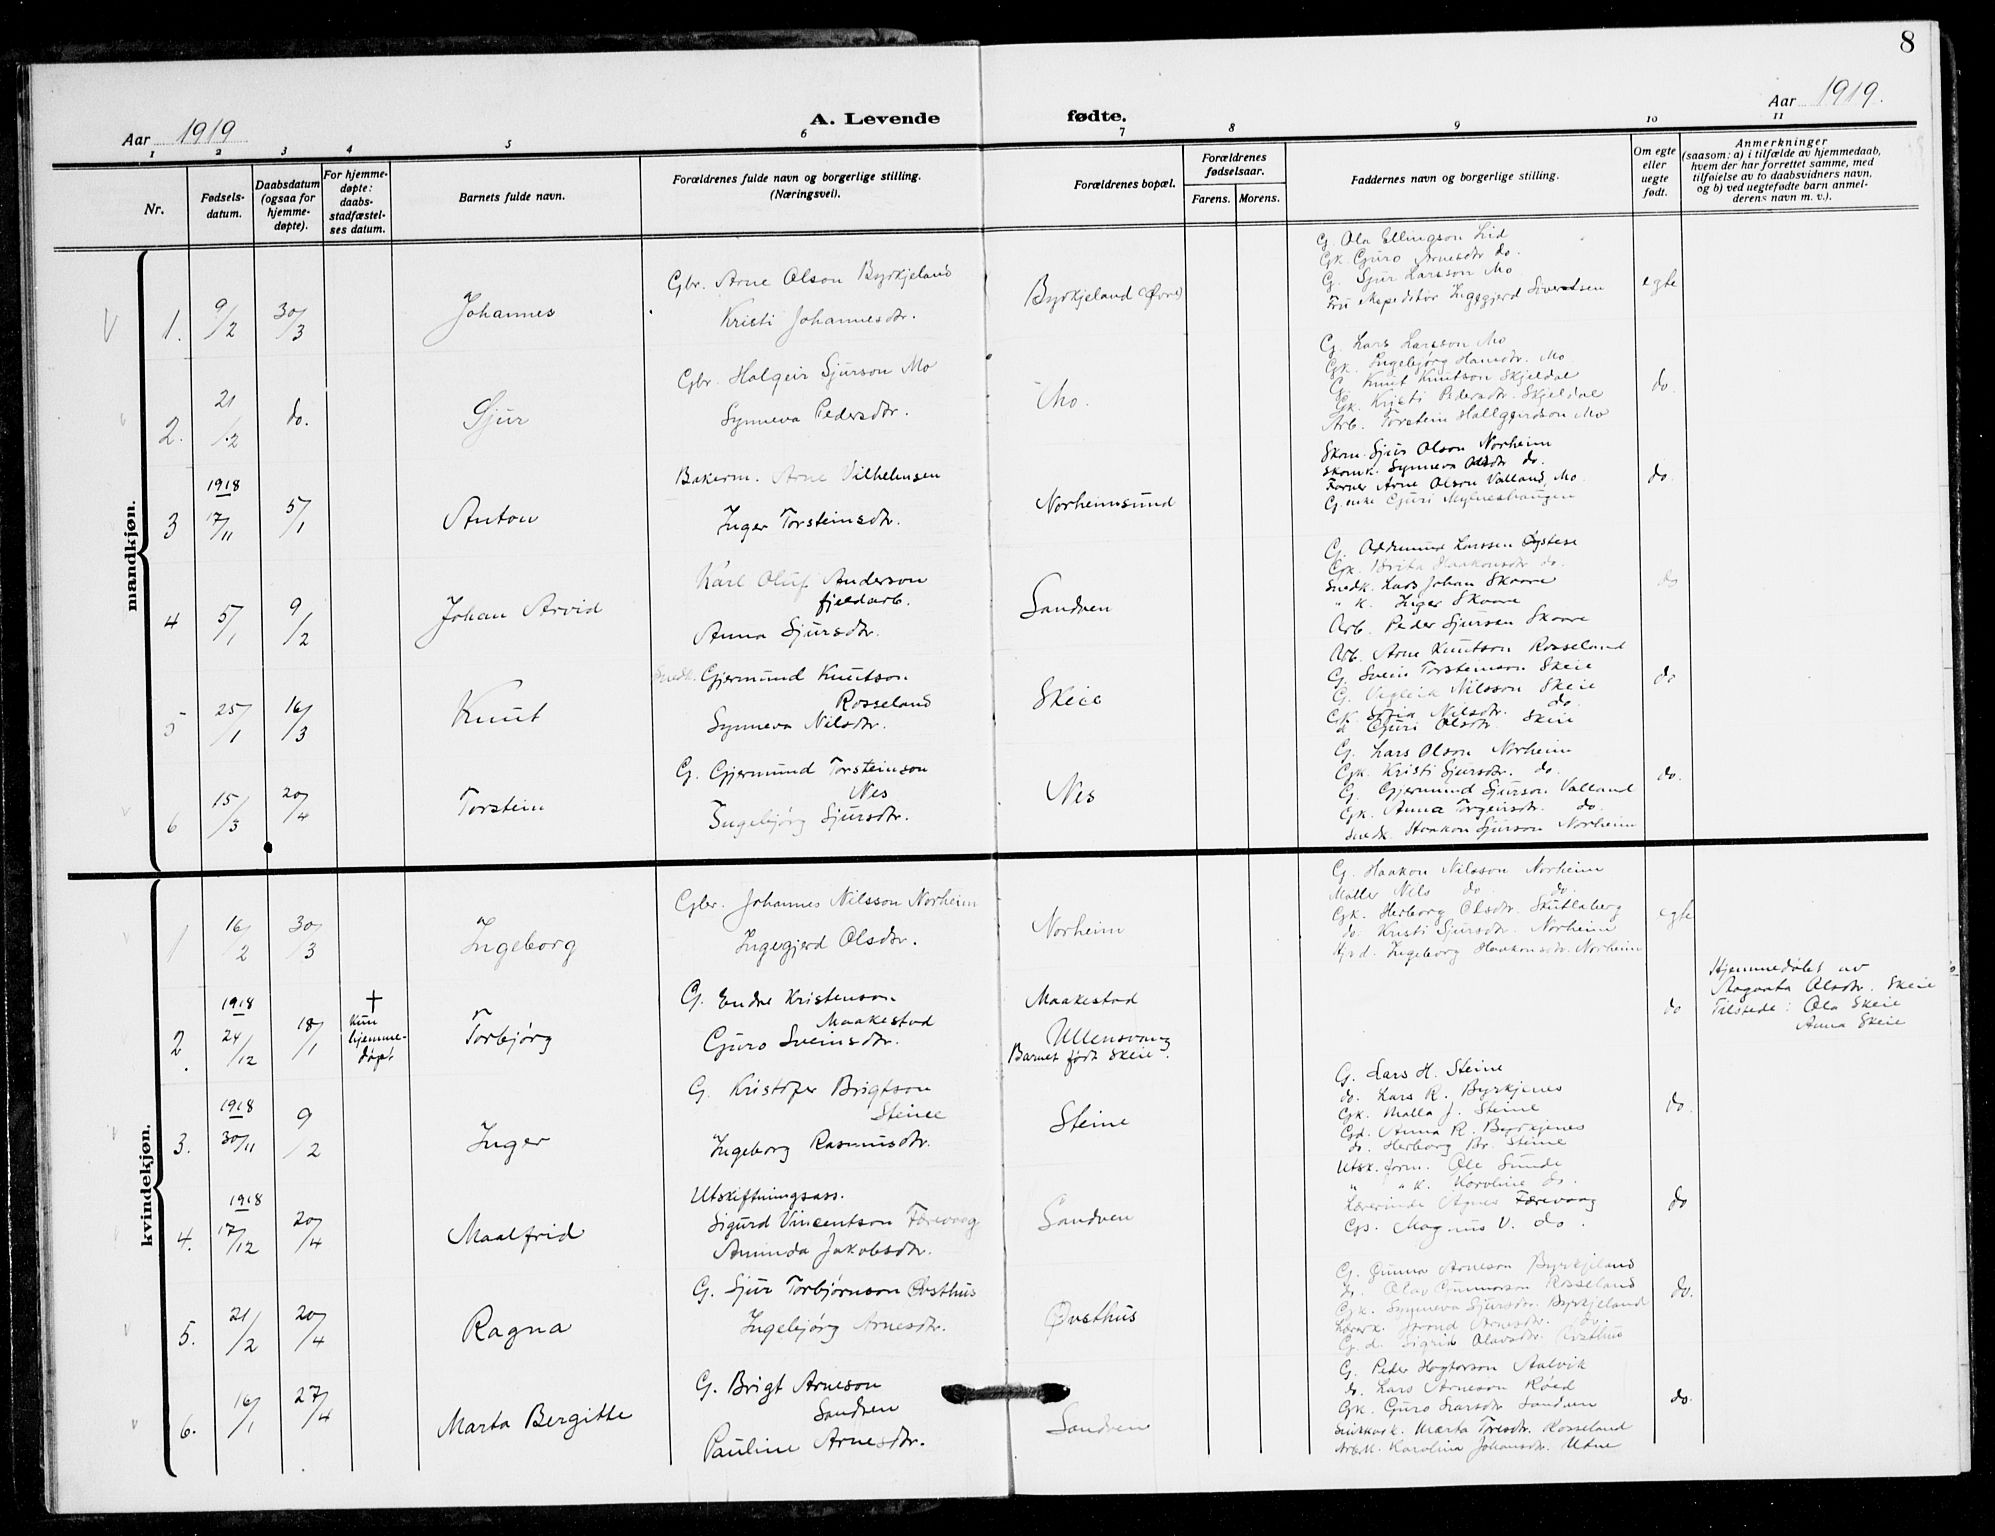 8
Aar 1919
A. Levende fødte.
Aar 1919.
1 2 3 4 5 6 7 8 9 10 11
Nr.
Fødsels-
datum.
Daabsdatum
(ogsaa for
hjemme-
døpte).
For hjemme-
døpte:
daabs-
stadfæstel-
ses datum.
Barnets fulde navn.
Forældrenes fulde navn og borgerlige stilling.
(Næringsvei).
Forældrenes bopæl.
Forældrenes
fødselsaar.
Farens. Morens.
Faddernes navn og borgerlige stilling.
Om egte
eller
uegte
født.
Anmerkninger
(saasom: a) i tilfælde av hjemmedaab,
hvem der har forrettet samme, med
tilføielse av to daabsvidners navn,
og b) ved uegtefødte barn anmel-
derens navn m. v.).
mandkjøn.
1. 9/2 30/3 Johannes
Gbr. Arne Olson Byrkjeland
Kristi Johannesdtr.
Byrkjeland (Øvre)
G. Ola Ellingson Lid
Gk. Guro Arnesdtr do.
G. Sjur Larsson Mo
Fru Ingegjerd Sivertsen
egte
2. 21/2 do. Sjur
Gbr. Halgeir Sjurson Mo
Synneva Pedersdtr.
Mo.
G. Lars Larsson Mo
Gk. Ingebjørg Hansdtr. Mo
G. Knut Knutson Skjeldal
Gk. Kristi Pedersdtr. Skjeldal
Arb. Torstein Hallgeirdson Mo
do.
3 1918 17/11 5/1 Anton
Bakerm. Arne Vilhelmsen
Inger Torsteinsdtr.
Norheimsund
Skom. Sjur Olson Norheim
Skomk. Synneva Olsdtr do.
Farver Arne Olson Valland, Mo
G. enke Guri Mylneshaugen
do.
4 5/1 9/2 Johan Arvid
Karl Oluf Anderson
fjeldarb.
Anna Sjursdtr.
Sandven
G. Oddmund Larssen Øystese
Gk. Brita Haakonsdtr do.
Snedk. Lars Johan Skaare
" k. Inger Skaare
Arb. Peder Sjursen Skaare
do
5 25/1 16/3 Knut
Snedk. Gjermund Knutson
Rosseland
Synneva Nilsdtr.
Skeie
Arb. Arne Knutson Rosseland
G. Svein Torsteinson Skeie
G. Nilsson Skeie
Gk. Nilsdtr. do.
" Guri Olsdtr. Skeie
do
6 15/3 20/4 Torstein
G. Gjermund Torsteinson
Nes
Ingebjørg Sjursdtr.
Nes
G. Lars Olson Norheim
Gk. Kristi Sjursdtr. do.
G. Gjermund Sjurson Valland
Gk. Anna Torgeirsdtr. do.
Snedk. Haakon Sjurson Norheim
do.
kvindekjøn.
1 16/2 30/3 Ingeborg
Gbr. Johannes Nilsson Norheim
Ingegjerd Olsdtr.
Norheim
G. Haakon Nilsson Norheim
Møller Nils do do.
Gk. Herborg Olsdtr. Skutlaberg
do. Kristi Sjursdtr. Norheim
Ingeborg Haakonsdtr. Norheim
egte
2. 1918 24/12 18/1
†
Kun
hjemme-
døpt
Torbjørg
G. Endre Kristenson
Maakestad
Guro Sveinsdtr.
Maakestad
Ullensvang
Barnet født Skeie.
do
Hjemmedøbt av
Magreta Olsdtr. Skeie
Tilstede: Ola Skeie
Anna Skeie
3. 1918 30/11 9/2 Inger
G. Kristofer Brigtson
Steine
Ingeborg Rasmusdtr.
Steine
G. Lars H. Steine
do. Lars R. Byrkjenes
Gk. Malla J. Steine
Gd. Anna R. Byrkjenes
do. Herborg Br. Steine
do.
4. 1918 17/12 20/4 Maalfrid
Utskiftningsass.
Sigurd Vincentson Færevaag
Aminda Jakobsdtr.
Sandven
Utsk. form. Ole Sunde
" " k. Karoline do.
Lærerinde Agnes Færevaag
Gs. Magnus V. do.
do
5. 21/2 20/4 Ragna
G. Sjur Torbjørnson Øvsthus
Ingebjørg Arnesdtr.
Øvsthus
G. Gunnar Arneson Byrkjeland
do. Olav Gunnarson Rosseland
Gk. Synneva Sjursdtr. Byrkjeland
Lærerk. Arnesdtr. do.
G. d. Sigrid Olavsdtr. Øvsthus
do.
6. 16/1 27/4 Marta Bergitte
G. Brigt Arneson
Sandven
Pauline Arnesdtr.
Sandven
G. Peder Aalvik
do. Lars Arneson Røed
Gk. Guro Larsdtr Sandven
Marta Toresdtr. Rosseland
Karolina Johansdtr. Utne
do.